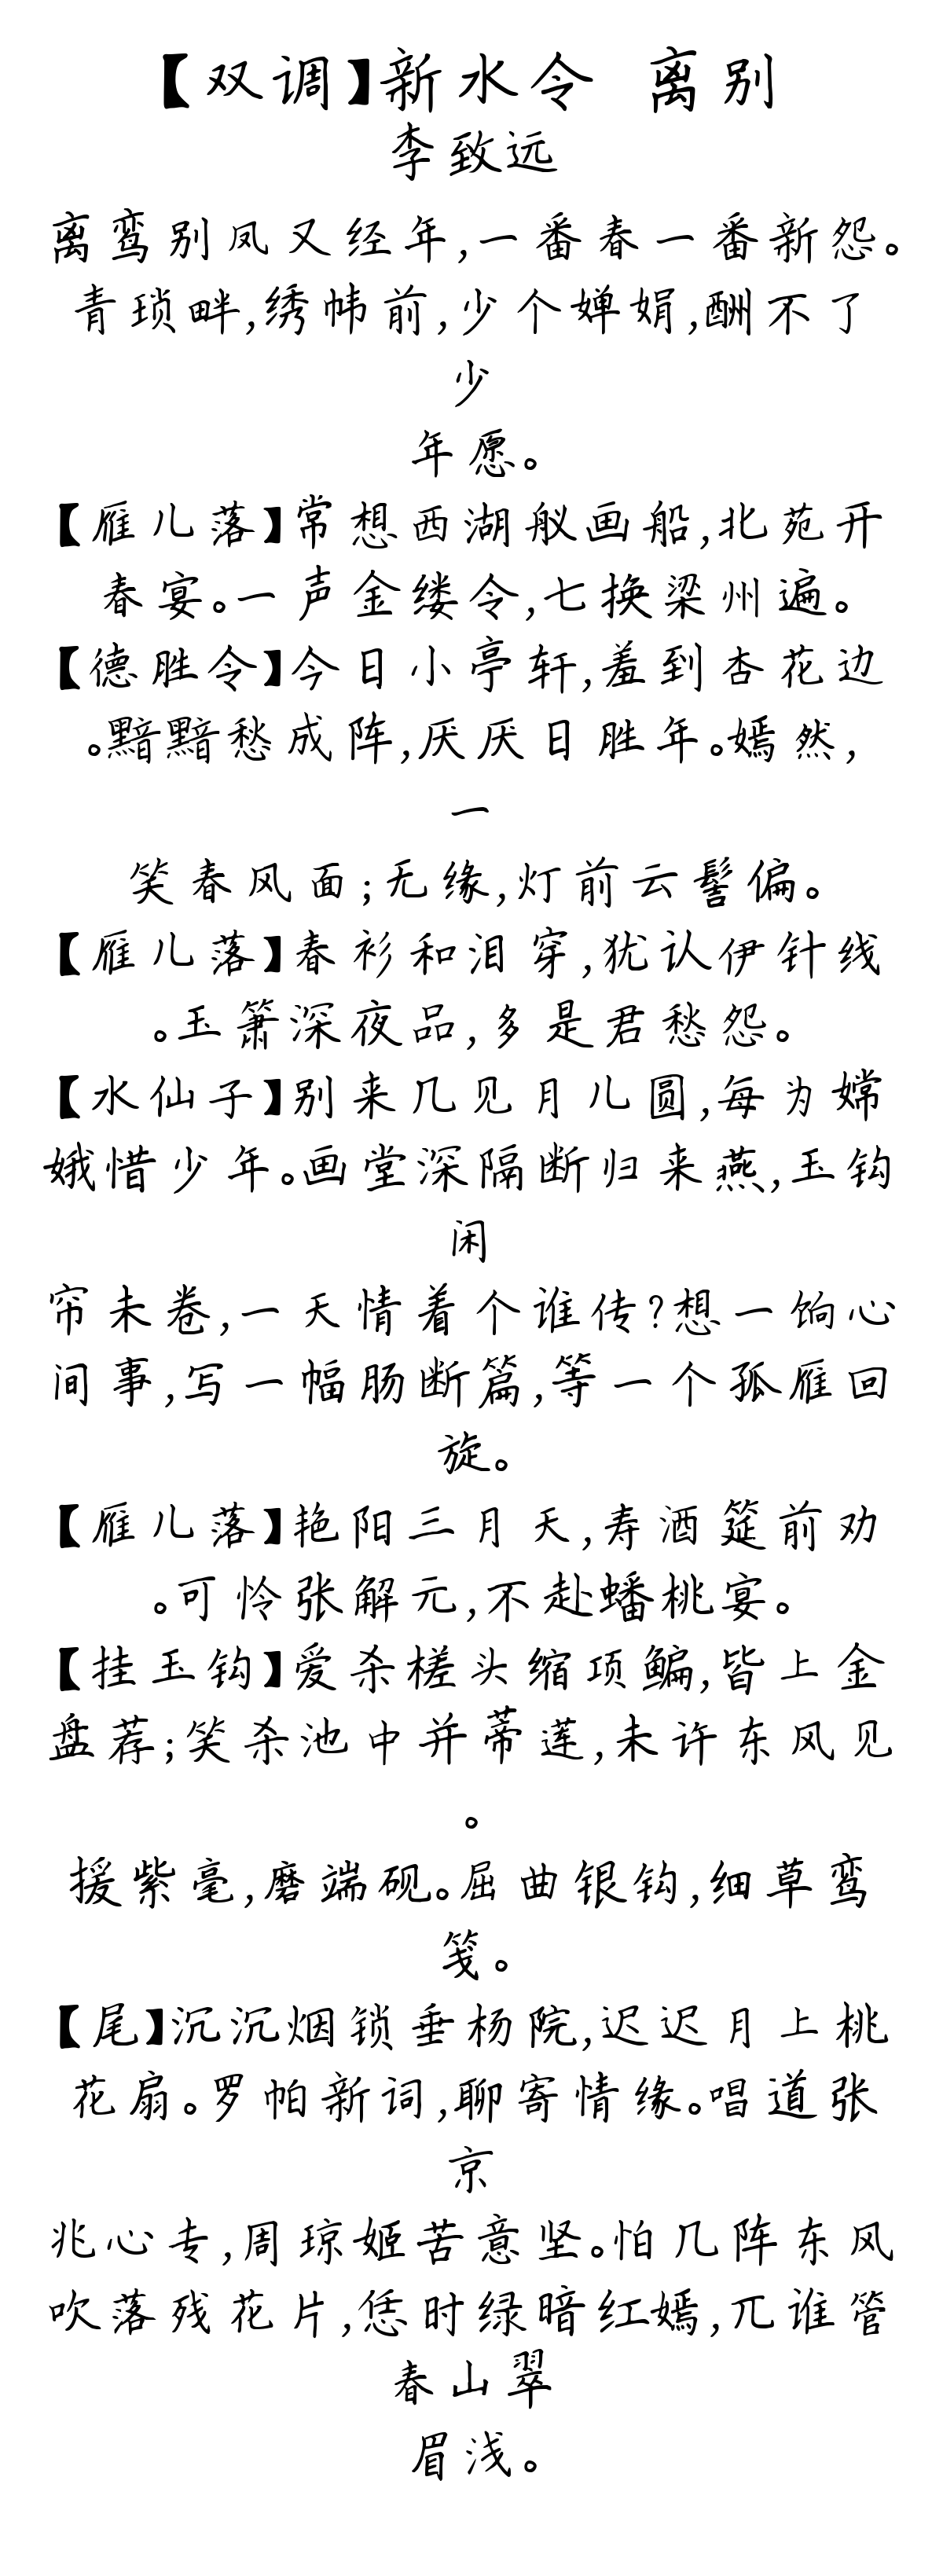 【双调】新水令 离别
李致远
离鸾别凤又经年,一番春一番新怨。
青琐畔,绣帏前,少个婵娟,酬不了
少
年愿。
【雁儿落】常想西湖舣画船,北苑开
春宴。一声金缕令,七换梁州遍。
【德胜令】今日小亭轩,羞到杏花边
。黯黯愁成阵,厌厌日胜年。嫣然,
一
笑春风面;无缘,灯前云髻偏。
【雁儿落】春衫和泪穿,犹认伊针线
。玉箫深夜品,多是君愁怨。
【水仙子】别来几见月儿圆,每为嫦
娥惜少年。画堂深隔断归来燕,玉钩
闲
帘未卷,一天情着个谁传?想一饷心
间事,写一幅肠断篇,等一个孤雁回
旋。
【雁儿落】艳阳三月天,寿酒筵前劝
。可怜张解元,不赴蟠桃宴。
【挂玉钩】爱杀槎头缩项鳊,皆上金
盘荐;笑杀池中并蒂莲,未许东风见
。
援紫毫,磨端砚。屈曲银钩,细草鸾
笺。
【尾】沉沉烟锁垂杨院,迟迟月上桃
花扇。罗帕新词,聊寄情缘。唱道张
京
兆心专,周琼姬苦意坚。怕几阵东风
吹落残花片,恁时绿暗红嫣,兀谁管
春山翠
眉浅。